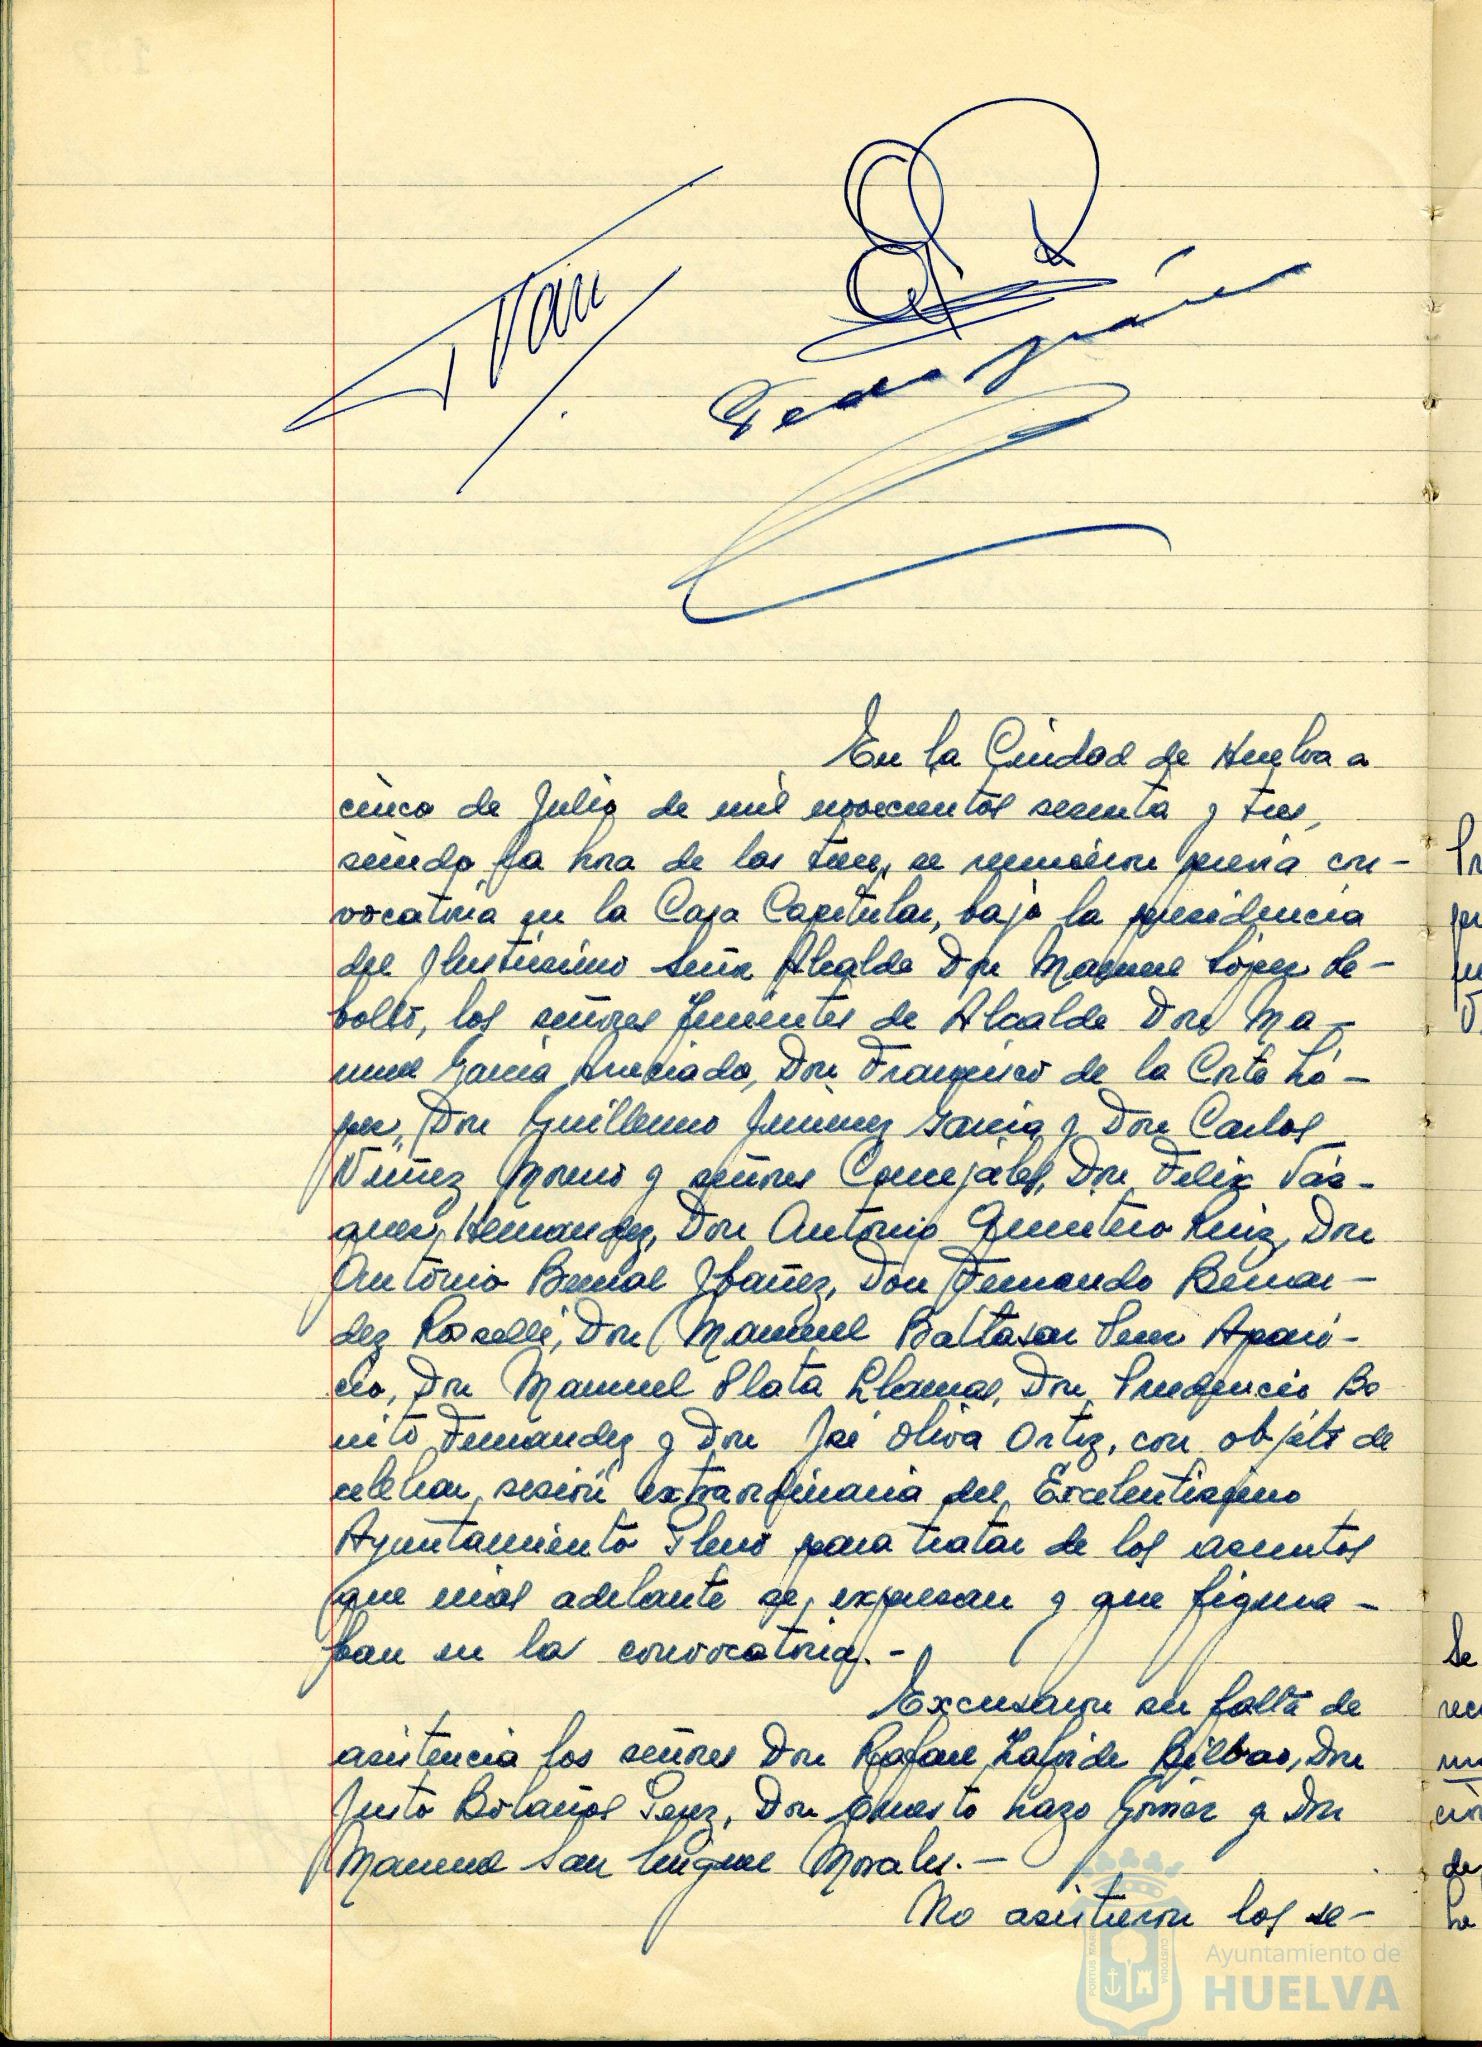 En la Ciudad de Huelva a
cinco de Julio de mil novecientos sesenta y tres,
siendo la hora de las trece, se reunieron previa con-
vocatoria en la Casa Capitular, bajo la presidencia
del Ilustrísimo Señor Alcalde Don Manuel López Re-
bollo, los señores Tenientes de Alcalde Don Ma-
nuel García Don Francisco de la Corte Ló-
pez, Don Guillermo Jiménez García y Don Carlos
Núñez Moreno y señores Concejales, Don Felix Váz-
quez Hernandez, Don Antonio Quintero Ruiz, Don
Antonio Bernal Ibañez, Don Fernando Bernar-
dez Roselli, Don Manuel Baltasar Pern Apari-
cio, Don Manuel Plata Llamas, Don Prudencio Bo
nito Fernandez y Don José Oliva Ortiz, con objeto de
celebrar sesión extraordinaria del Excelentísimo
Ayuntamiento Pleno para tratar de los asuntos
que más adelante se expresan y que figura-
ban en la convocatoria.-
Excusaron su falta de
asistencia los señores Don Rafael Lafarde Bilbao, Don
Justo Bolaños Perez, Don Ernesto Lazo Gómez y Don
Manuel San Miguel Morales.-
No asistieron los se-
PORTUS MARIS
CUSTODIA
Ayuntamiento de
HUELVA